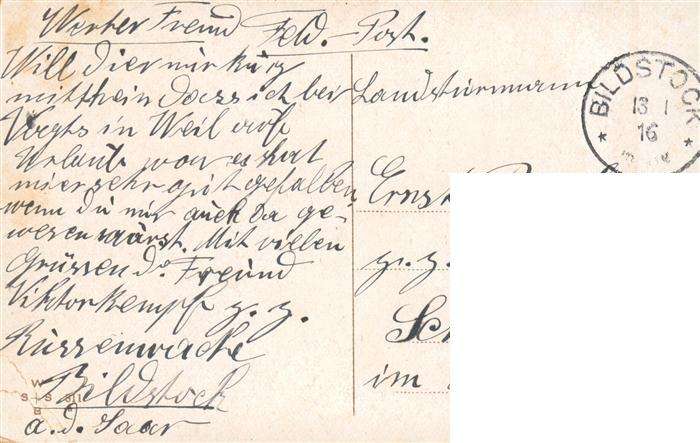 Werter Freund Feld.-Post.
Will dier nur kurz
mittheiln dass ich bei
Vogts in Weil auf
Urlaub war es hat
mier sehr gut gefallen
wenn du nur auch da ge-
wesen wärst. Mit vielen
Grüssen d. Freund
Viktor Kempf z. Z.
Russenwache
Bildstock
a. d. Saar
W
S S 311
B
Landsturmann
Ernst
z. Z.
Sch
im
BILDSTOCK
13 1
16